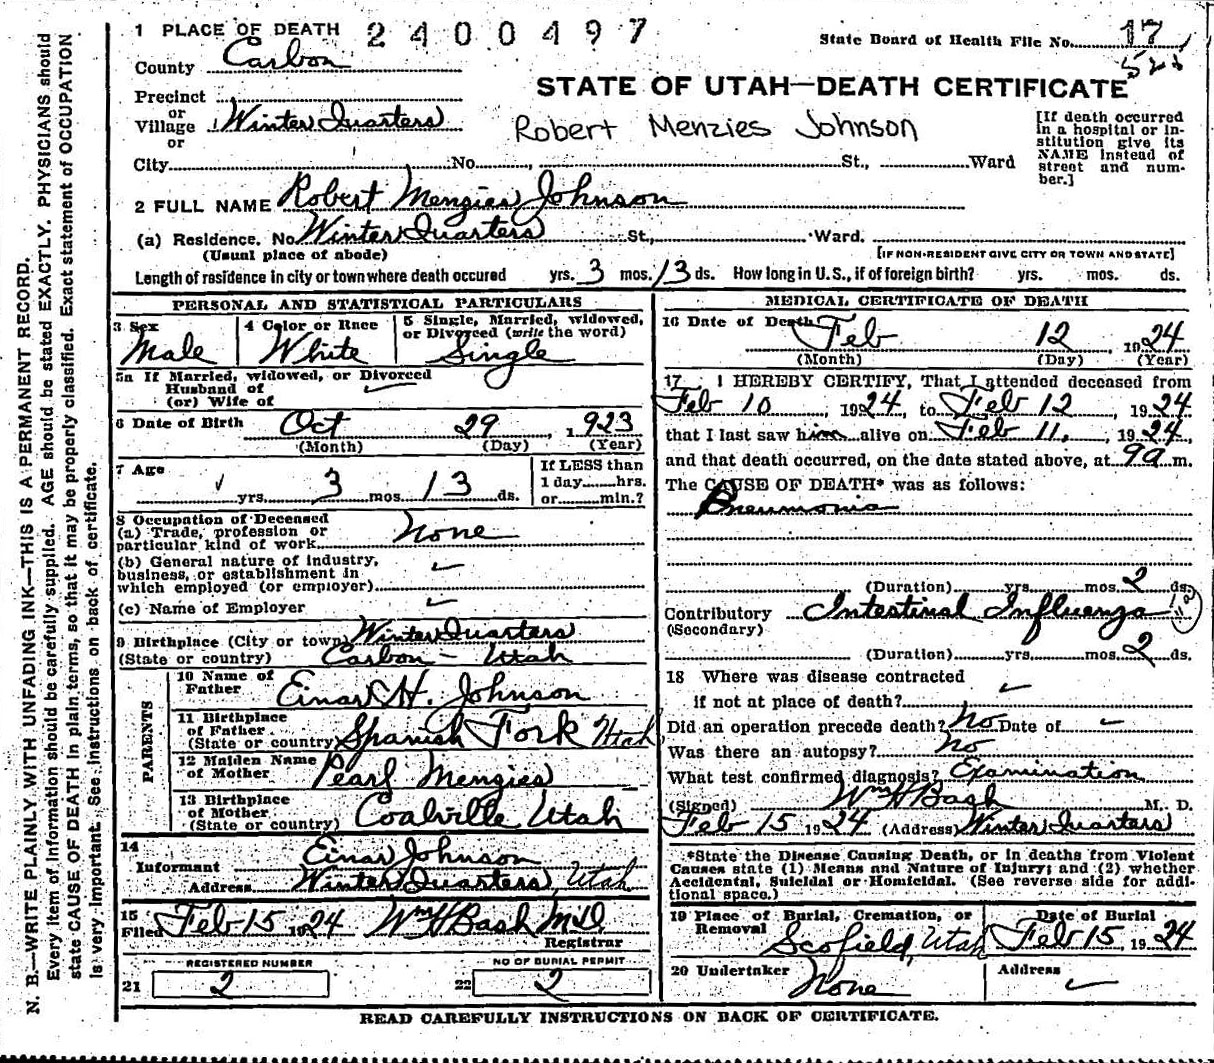 1 PLACE OF DEATH 2400497
State Board of Health File No. 17
County Carbon
STATE OF UTAH—DEATH CERTIFICATE
Precinct
or
Village Winter Quarters
or
Robert Menzies Johnson
[If death occurred
in a hospital or in-
stitution give its
NAME instead of
street and num-
ber.]
City No. , St., Ward
2 FULL NAME Robert Menzies Johnson
(a) Residence. No. Winter Quarters St., Ward.
(Usual place of abode) [IF NON-RESIDENT GIVE CITY OR TOWN AND STATE]
Length of residence in city or town where death occured yrs. 3 mos. 13 ds. How long in U.S., if of foreign birth? yrs. mos. ds.
PERSONAL AND STATISTICAL PARTICULARS
3 Sex
Male
4 Color or Race
White
5 Single, Married, widowed,
or Divorced (write the word)
Single
5a If Married, widowed, or Divorced
Husband of
(or) Wife of
6 Date of Birth Oct 29, 1923
(Month) (Day) (Year)
7 Age
yrs. 3 mos. 13 ds.
If LESS than
1 day hrs.
or min.?
8 Occupation of Deceased
(a) Trade, profession or
particular kind of work None
(b) General nature of industry,
business, or establishment in
which employed (or employer)
(c) Name of Employer
9 Birthplace (City or town) Winter Quarters
(State or country) Carbon - Utah
PARENTS
10 Name of
Father Einar H. Johnson
11 Birthplace
of Father
(State or country) Spanish Fork Utah
12 Maiden Name
of Mother Pearl Menzies
13 Birthplace
of Mother
(State or country) Coalville Utah
14
Informant Einar Johnson
Address Winter Quarters, Utah
15
Filed Feb 15 1924 Wm H Bash
Registrar
REGISTERED NUMBER
21 2
NO OF BURIAL PERMIT
22 2
MEDICAL CERTIFICATE OF DEATH
16 Date of Death Feb 12, 1924
(Month) (Day) (Year)
17 I HEREBY CERTIFY, That I attended deceased from
Feb 10, 1924, to Feb 12, 1924
that I last saw him alive on Feb 11, 1924,
and that death occurred, on the date stated above, at 9a m.
The CAUSE OF DEATH* was as follows:
Pneumonia
(Duration) yrs. mos. 2 ds.
Contributory Intestinal Influenza
(Secondary)
(Duration) yrs. mos. 2 ds.
18 Where was disease contracted
if not at place of death?
Did an operation precede death? no Date of
Was there an autopsy? no
What test confirmed diagnosis? Examination
(Signed) Wm H Bash M. D.
Feb 15 1924 (Address) Winter Quarters
*State the Disease Causing Death, or in deaths from Violent
Causes state (1) Means and Nature of Injury; and (2) whether
Accidental, Suicidal or Homicidal. (See reverse side for addi-
tional space.)
19 Place of Burial, Cremation, or
Removal Scofield, Utah
Date of Burial
Feb 15, 1924
20 Undertaker
None
Address
READ CAREFULLY INSTRUCTIONS ON BACK OF CERTIFICATE.
N. B.—WRITE PLAINLY WITH UNFADING INK—THIS IS A PERMANENT RECORD.
Every item of information should be carefully supplied. AGE should be stated EXACTLY. PHYSICIANS should
state CAUSE OF DEATH in plain terms, so that it may be properly classified. Exact statement of OCCUPATION
is very important. See instructions on back of certificate.